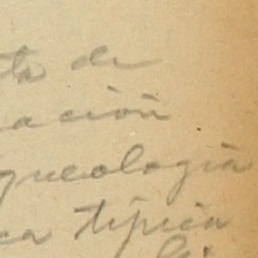 ta de
ación
queología
ca típica